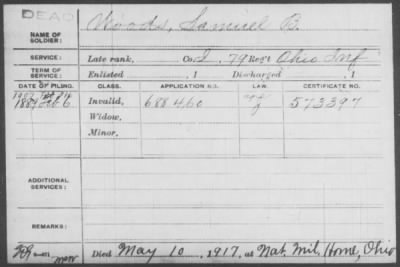 DEAD
NAME OF SOLDIER: Woods, Samuel B.
SERVICE: Late rank, Co. I, 79 Reg't Ohio Inf
TERM OF SERVICE: Enlisted , 1 Discharged , 1
DATE OF FILING. CLASS. APPLICATION NO. LAW. CERTIFICATE NO.
1889 6 Invalid, 688460 573397
Widow,
Minor,
ADDITIONAL SERVICES:
REMARKS:
Died May 10, 1917, at Nat. Mil. Home, Ohio